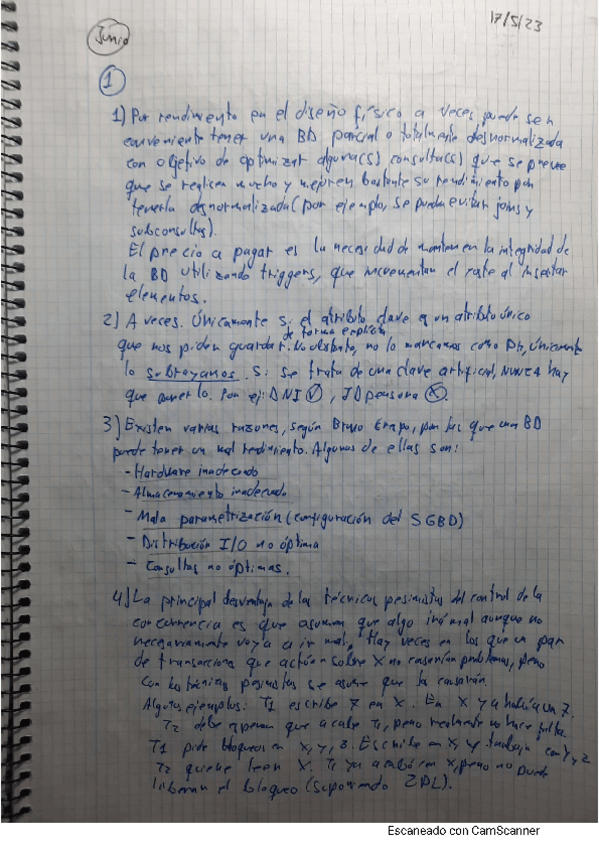 17/5/23
Junio
1
1) Por rendimiento en el diseño físico a veces puede ser
conveniente tener una BD parcial o totalmente desnormalizada
con objetivo de optimizar alguna(s) consulta(s) que se prevee
que se realicen mucho y mejoren bastante su rendimiento por
tenerla desnormalizada (por ejemplo, se puedan evitar joins y
subconsultas).
El precio a pagar es la necesidad de mantener la integridad de
la BD utilizando triggers, que incrementan el coste al insertar
elementos.
2) A veces. Únicamente si el atributo clave es un atributo único
de forma explícita
que nos piden guardar. No obstante, no lo marcamos como PK, únicamente
lo subrayamos. Si se trata de una clave artificial, NUNCA hay
que ponerlo. Por ej: DNI ✓, ID persona X.
3) Existen varias razones, según Bravo Crapo, por las que una BD
puede tener un mal rendimiento. Algunas de ellas son:
- Hardware inadecuado
- Almacenamiento inadecuado
- Mala parametrización (configuración del SGBD)
- Distribución I/O no óptima
- Consultas no óptimas.
4) La principal desventaja de las técnicas pesimistas del control de la
concurrencia es que asumen que algo irá mal aunque no
necesariamente vaya a ir mal. Hay veces en los que un par
de transacciones que actúan sobre X no causarían problemas, pero
con las técnicas pesimistas se asume que la causarán.
Algunos ejemplos: T1 escribe 7 en X. En X ya había un 7.
T2 debe esperar que acabe T1, pero realmente no hace falta.
T1 pide bloqueos en X, Y, Z. Escribe en X, y trabaja con Y y Z
T2 quiere leer X. T1 ya acabó en X, pero no puede
liberar el bloqueo (suponiendo 2PL).
Escaneado con CamScanner